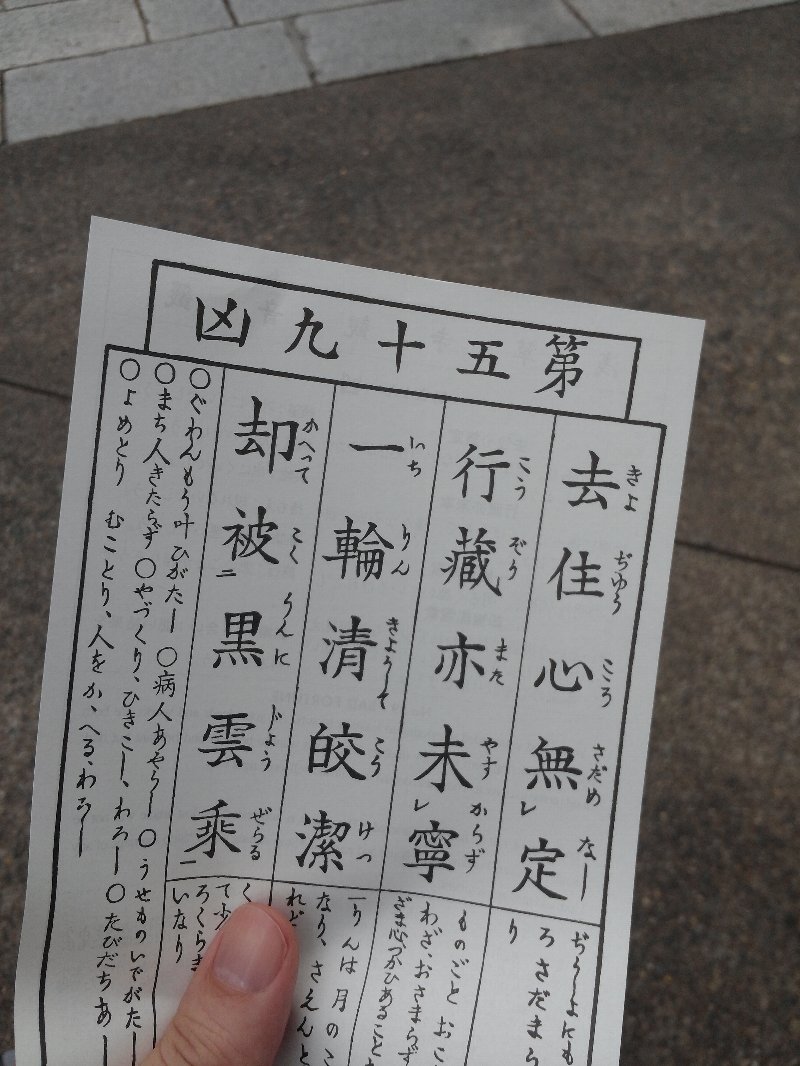 第五十九凶
去住心無レ定
きよぢゆうこころさだめなし
行藏亦未レ寧
こうぞうまたやすからず
一輪清皎潔
いちりんきようしてこうけつ
却被二黒雲乘一
かへってこくうんにじょうぜらる
ぢうしよにも
ろさだまら
り
ものごとおこ
わざ、おさまらず
ざま心づかひあること
一りんは月のこ
なり、さえんと
れど
く
て
ろくらき
いなり
○ぐわんもう叶ひがたし ○病人あやうし ○うせものいでがたし
○まち人きたらず ○やづくり、ひきこし、わろし ○たびだちあし
○よめとり むことり、人をかゝへる、わろし